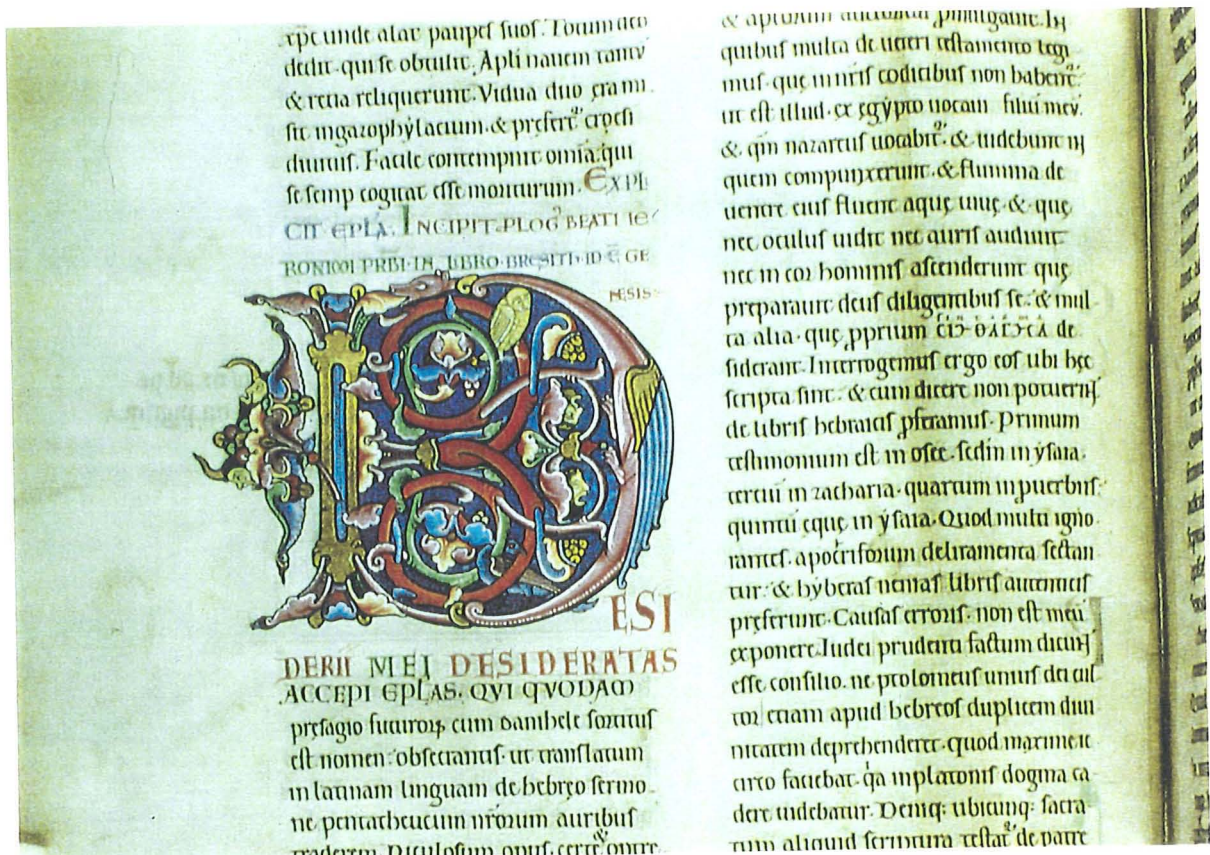 xp̄c unde alat paupeſ ſuoſ. Totum deo
dedit. qui ſe obtulit. Apl̄i nauem tantū
& retia reliquerunt. Vidua duo gra mi
ſit in gazophylacium. & prefert̄ creſi
diuitiiſ. Facile contempnit om̄ia. qui
ſe ſemp cogitat eſſe moriturum. EXPLI
CIT EPLA. INCIPIT PLOG BEATI IE
RONIMI PRBI IN LIBRO BRESITH ID Ē GE
NESIS
DESI
DERII MEI DESIDERATAS
ACCEPI EPLAS. QVI QVODAM
preſagio futuroꝝ cum danihele ſortituſ
eſt nomen. obſecrantiſ. ut tranſlatum
in latinam linguam de hebręo ſermo
ne pentatheucum nr̄orum auribuſ
traderem. Piculoſum opuſ. certe &
& apl̄orum auctoritaſ pmulgauit. In
quibuſ multa de ueteri teſtamento legi
muſ. quę in nr̄iſ codicibuſ non habent̄.
ut eſt illud. ex ęgypto uocaui filiū meū.
& qm̄ nazareuſ uocabit̄. & uidebunt in
quem compunxerunt. & flumina de
uentre eiuſ fluent aquę uiuę. & quę
nec oculuſ uidit nec auriſ audiuit.
nec in cor hominiſ aſcenderunt quę
preparauit deuſ diligentibuſ ſe. & mul
ta alia. quę pprium de
ſiderant. Interrogemuſ ergo eoſ ubi hęc
ſcripta ſint. & cum dicere non potuerint
de libriſ hebraiciſ pferamuſ. Primum
teſtimonium eſt in oſee. ſedm in yſaia.
tertiū in zacharia. quartum in puerbiiſ.
quintū ęque in yſaia. Quod multi igno
ranteſ. apocriforum deliramenta ſectan
tur. & hyberaſ neniaſ libriſ autenticiſ
pręferunt. Cauſaſ erroriſ. non eſt meū
exponere. Iudei prudenti factum dicunt
eſſe conſilio. ne ptolomeuſ uniuſ dei cul
tor etiam apud hebreoſ duplicem diui
nitatem deprehenderet. quod maxime ic
circo faciebat. q̄a in platoniſ dogma ca
dere uidebatur. Deniq; ubicunq; ſacra
tum aliquid ſcriptura teſtat̄ de patre